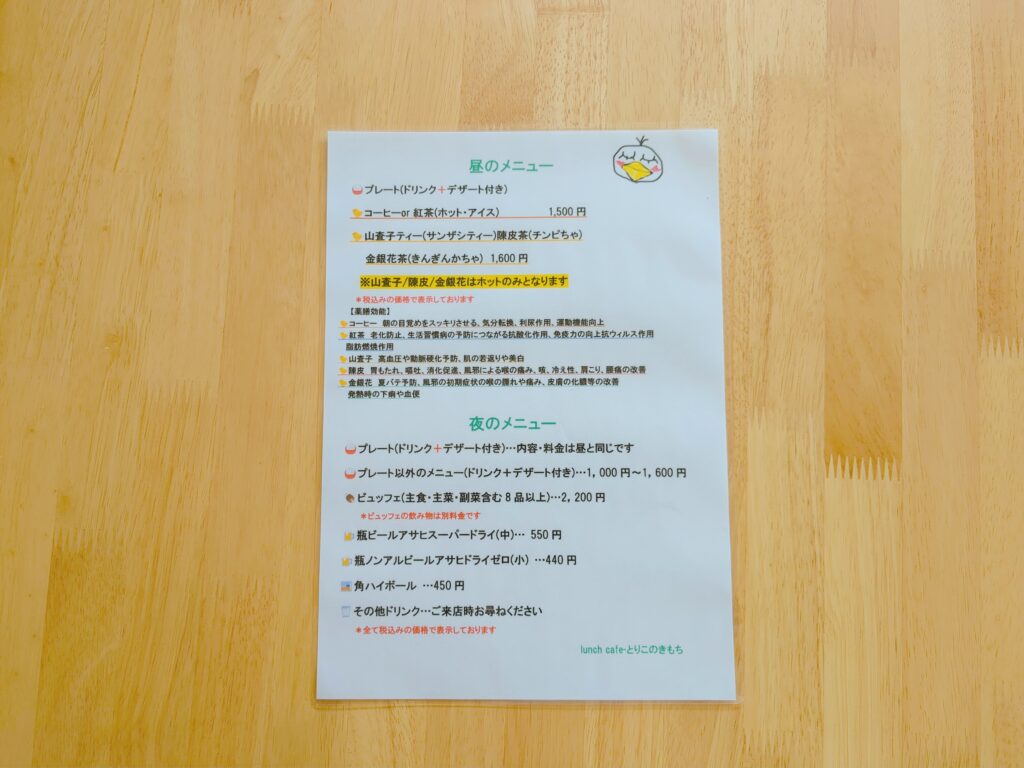 昼のメニュー
プレート(ドリンク+デザート付き)
コーヒーor 紅茶(ホット・アイス) 1,500 円
山査子ティー(サンザシティー)陳皮茶(チンピちゃ)
金銀花茶(きんぎんかちゃ) 1,600 円
※山査子/陳皮/金銀花はホットのみとなります
*税込みの価格で表示しております
【薬膳効能】
コーヒー 朝の目覚めをスッキリさせる、気分転換、利尿作用、運動機能向上
紅茶 老化防止、生活習慣病の予防につながる抗酸化作用、免疫力の向上抗ウィルス作用
脂肪燃焼作用
山査子 高血圧や動脈硬化予防、肌の若返りや美白
陳皮 胃もたれ、嘔吐、消化促進、風邪による喉の痛み、咳、冷え性、肩こり、腰痛の改善
金銀花 夏バテ予防、風邪の初期症状の喉の腫れや痛み、皮膚の化膿等の改善
発熱時の下痢や血便
夜のメニュー
プレート(ドリンク+デザート付き)…内容・料金は昼と同じです
プレート以外のメニュー(ドリンク+デザート付き)…1,000 円〜1,600 円
ビュッフェ(主食・主菜・副菜含む 8 品以上)…2,200 円
*ビュッフェの飲み物は別料金です
瓶ビールアサヒスーパードライ(中)… 550 円
瓶ノンアルビールアサヒドライゼロ(小) …440 円
角ハイボール …450 円
その他ドリンク…ご来店時お尋ねください
*全て税込みの価格で表示しております
lunch cafe-とりこのきもち